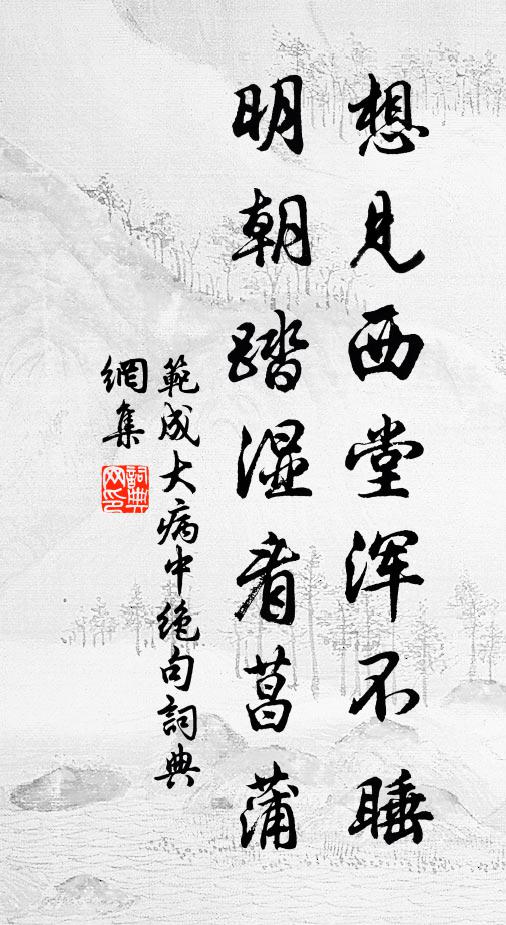 想见西堂浑不睡
明朝踏湿看菖蒲
範成大病中绝句詞典
網集
詞典网印